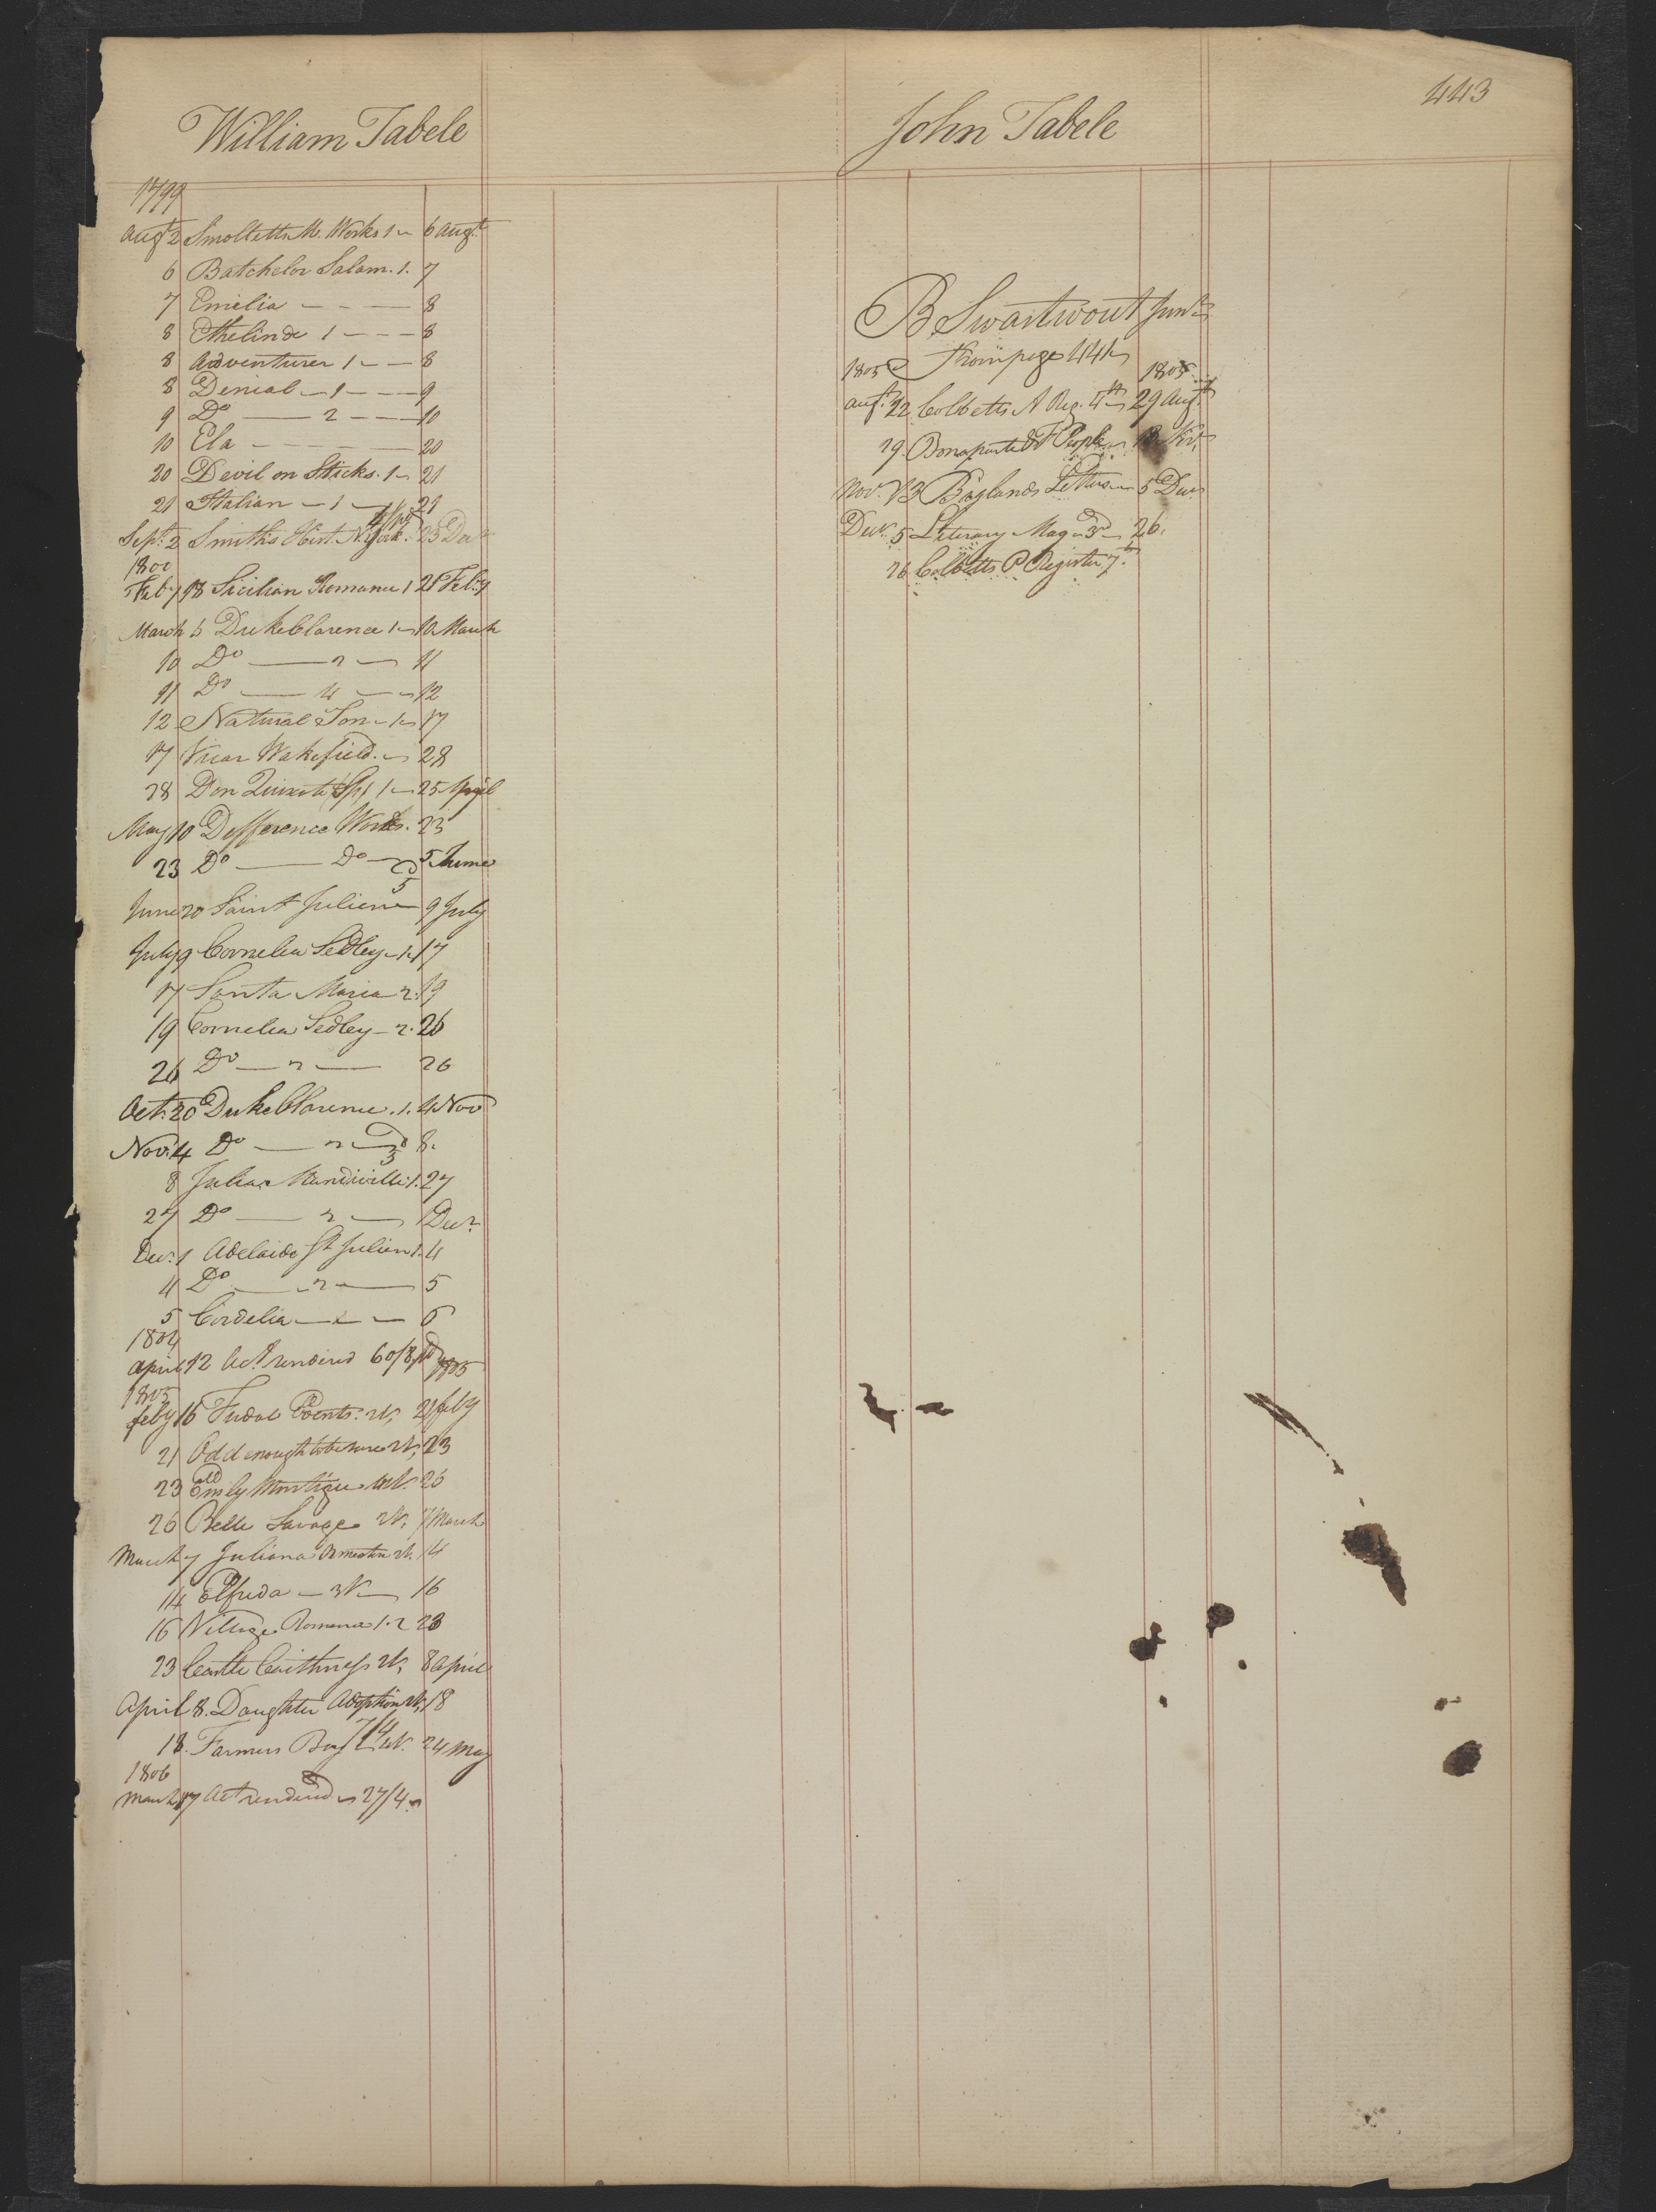 443
William Tabele
1799
Augt 2 Smolletts M. Works 1 6 Augt
6 Batchelor Salam. 1. 7
7 Emelia 8
8 Ethelinde 1 8
8 Adventurer 1 8
8 Denial 1 9
9 Do 2 10
10 Ela 20
20 Devil on Sticks. 1 21
21 Italian 1 21
Sept. 2 Smiths Hist. N. York. 23 Decr
1800
Feby 18 Sicilian Romance 1 21 Feby
March 5 Duke Clarence 1 10 March
10 Do 2 11
11 Do 4 12
12 Natural Son 1 17
17 Vicar Wakefield. 28
28 Don Quixote Sp 1 25 April
May 10 Defference Works. 23
23 Do Do 5 June
June 20 Saint Julien 9 July
July 9 Cornelia Sedley 1 17
17 Santa Maria 2. 19
19 Cornelia Sedley 2. 26
26 Do 2 26
Oct. 20 Duke Clarence. 1. 4 Nov
Nov. 4 Do 2 3d 8.
8 Julia Mandiville 1. 27
27 Do 2 1 Decr
Dec. 1 Adelaide St Julien 1. 4
4 Do 2 5
5 Cordelia 6
1804
April 12 Act rendered 60/8 pd 1805
1805
feby 16 Fudal Events. 2V, 21 feby
21 Odd enough to be sure 2V, 23
23 Emily Montigue 4V. 26
26 Belle Savage 2V, 7 March
March 7 Juliana Ormeston 2V. 14
14 Elfrida 3V 16
16 Village Romance 1. 2 23
23 Castle Caithness 2V, 8 April
April 8. Daughter Adoption 2V, 18
18. Farmers Boy 24 May
1806
March 17 Act rendered 27/4
John Tabele
B Swartwout Junr
from page 441
1805 1805
Augt. 22 Cobbetts A Reg. 4th 29 Augt
29. Bonaparte & F People 13 Nov.
Nov. 13 Baylands Letters 5 Decr
Decr. 5 Literary Mag 3d 26.
26 Cobbetts P Register 7th